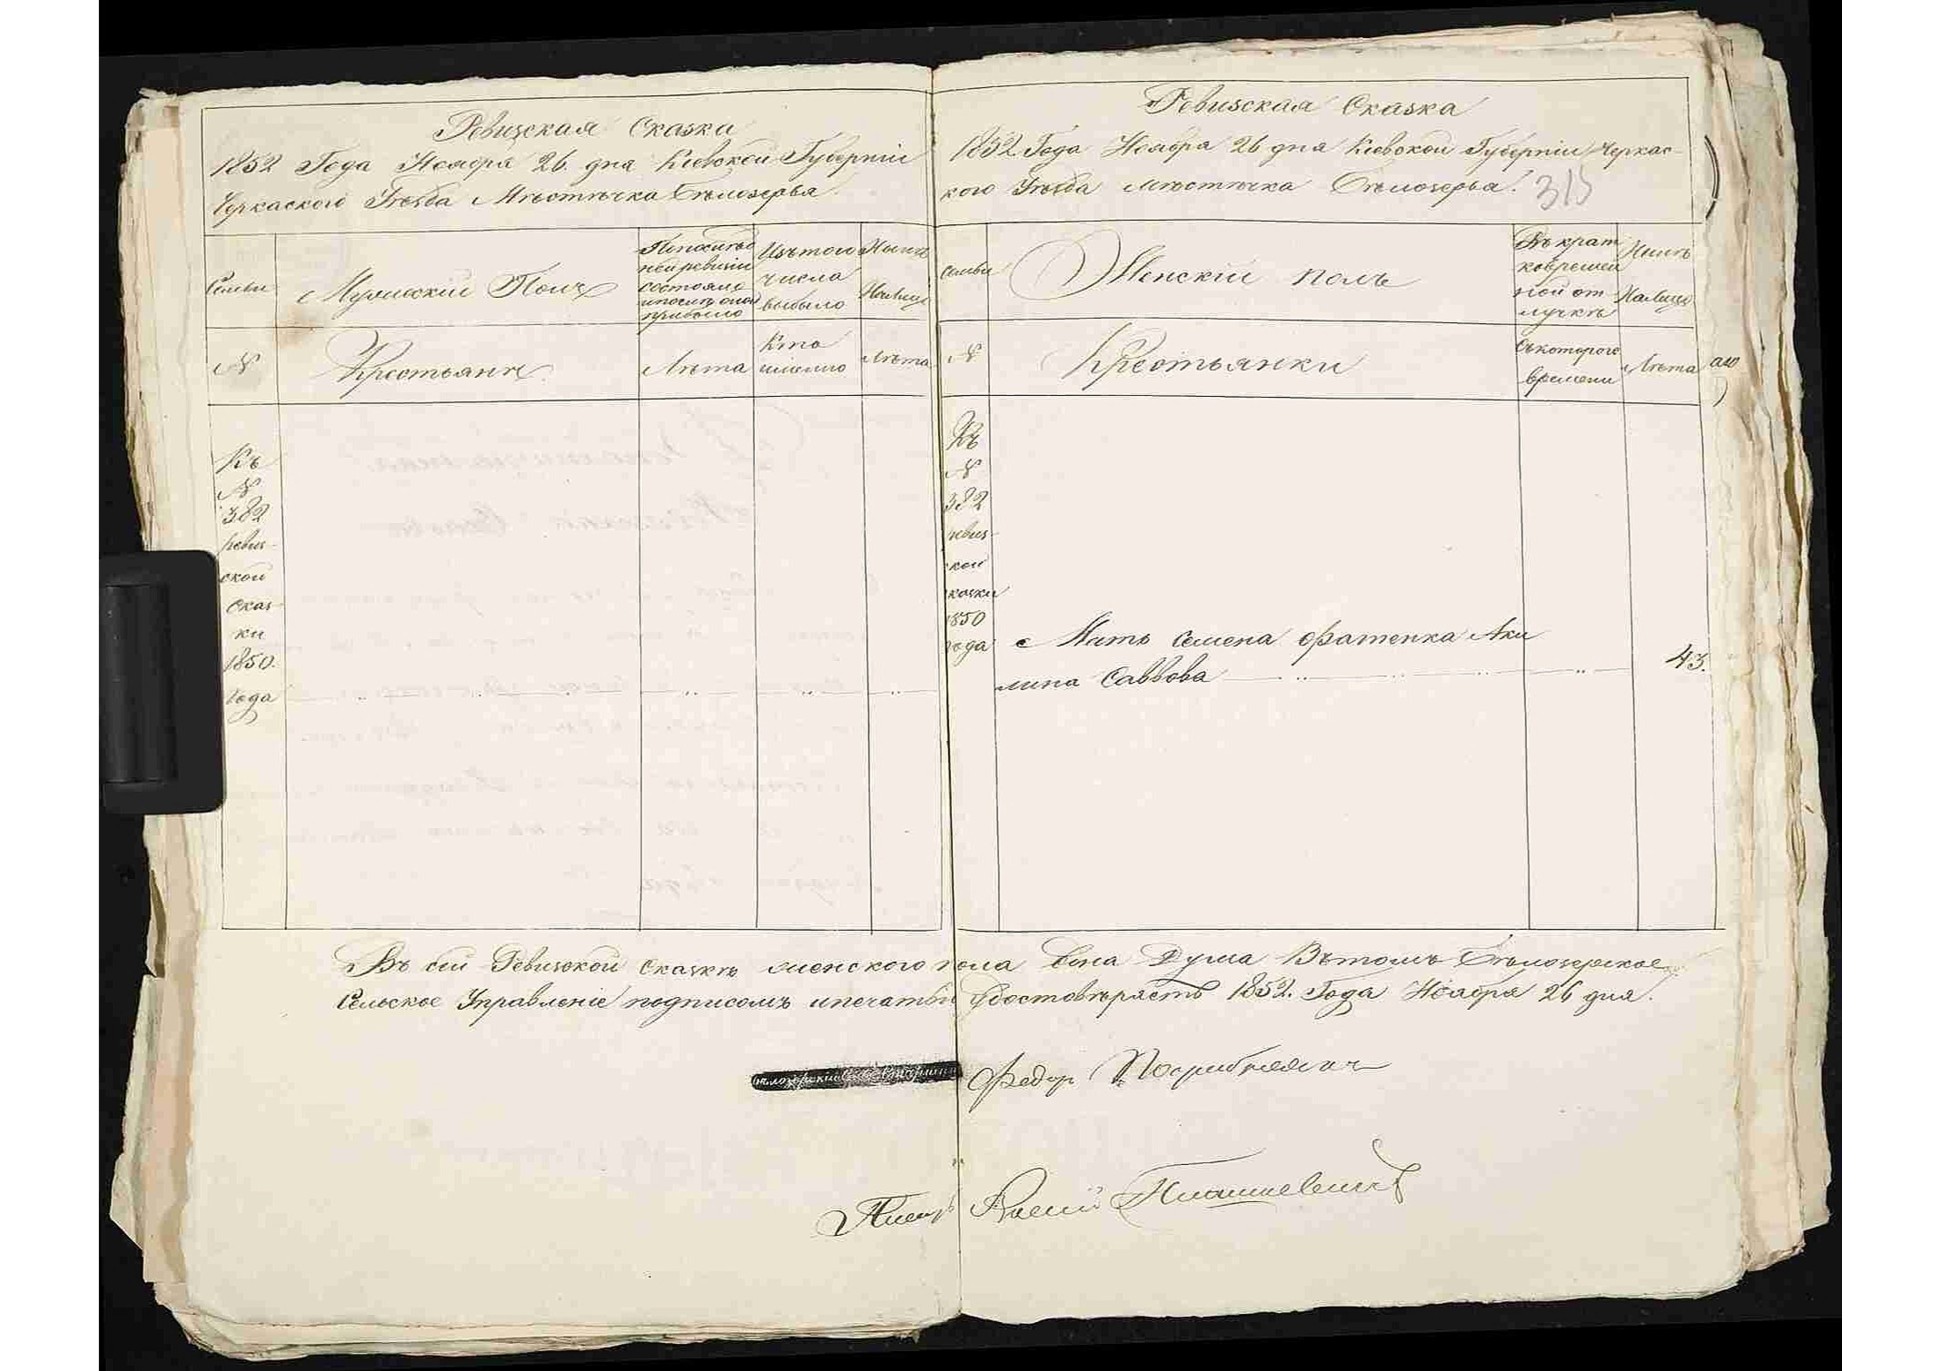 Ревизская Сказка
1852 Года Ноября 26. дня Кіевской Губерніи
Черкаского Уѣзда Мѣстѣчка Бѣлозерья
Семьи
Мужескій Полъ
По послѣд
ней ревизіи
состояло
и послѣ оной
прибыло
Изъ того
числа
выбыло
Нынѣ
На лицо
N
Крестьянъ
Лѣта
Кто
имянно
Лѣта
Къ
N
382
ревиз-
ской
сказ-
ки
1850.
года
Ревизская Сказка
1852 Года Ноября 26 дня Кіевской Губерніи Черкас-
кого Уѣзда Мѣстѣчка Бѣлозерья.
315
Семьи
Женскій полъ
Въ крат
ковремен
ной от
лучкѣ
Нынѣ
На лицо
N
Крестьянки
Съ которого
времени
Лѣта
Къ
N
382
ревиз-
кой
казки
1850
года
Мать Семена Фатенка Аку
лина Саввова
43.
Въ сей Ревизской сказкѣ женского пола Една Душа Въ томъ Бѣлозерское
Сельское Управленіе подписомъ и печатью Удостовѣряетъ 1852. Года Ноября 26 дня.
Федор
Писарь